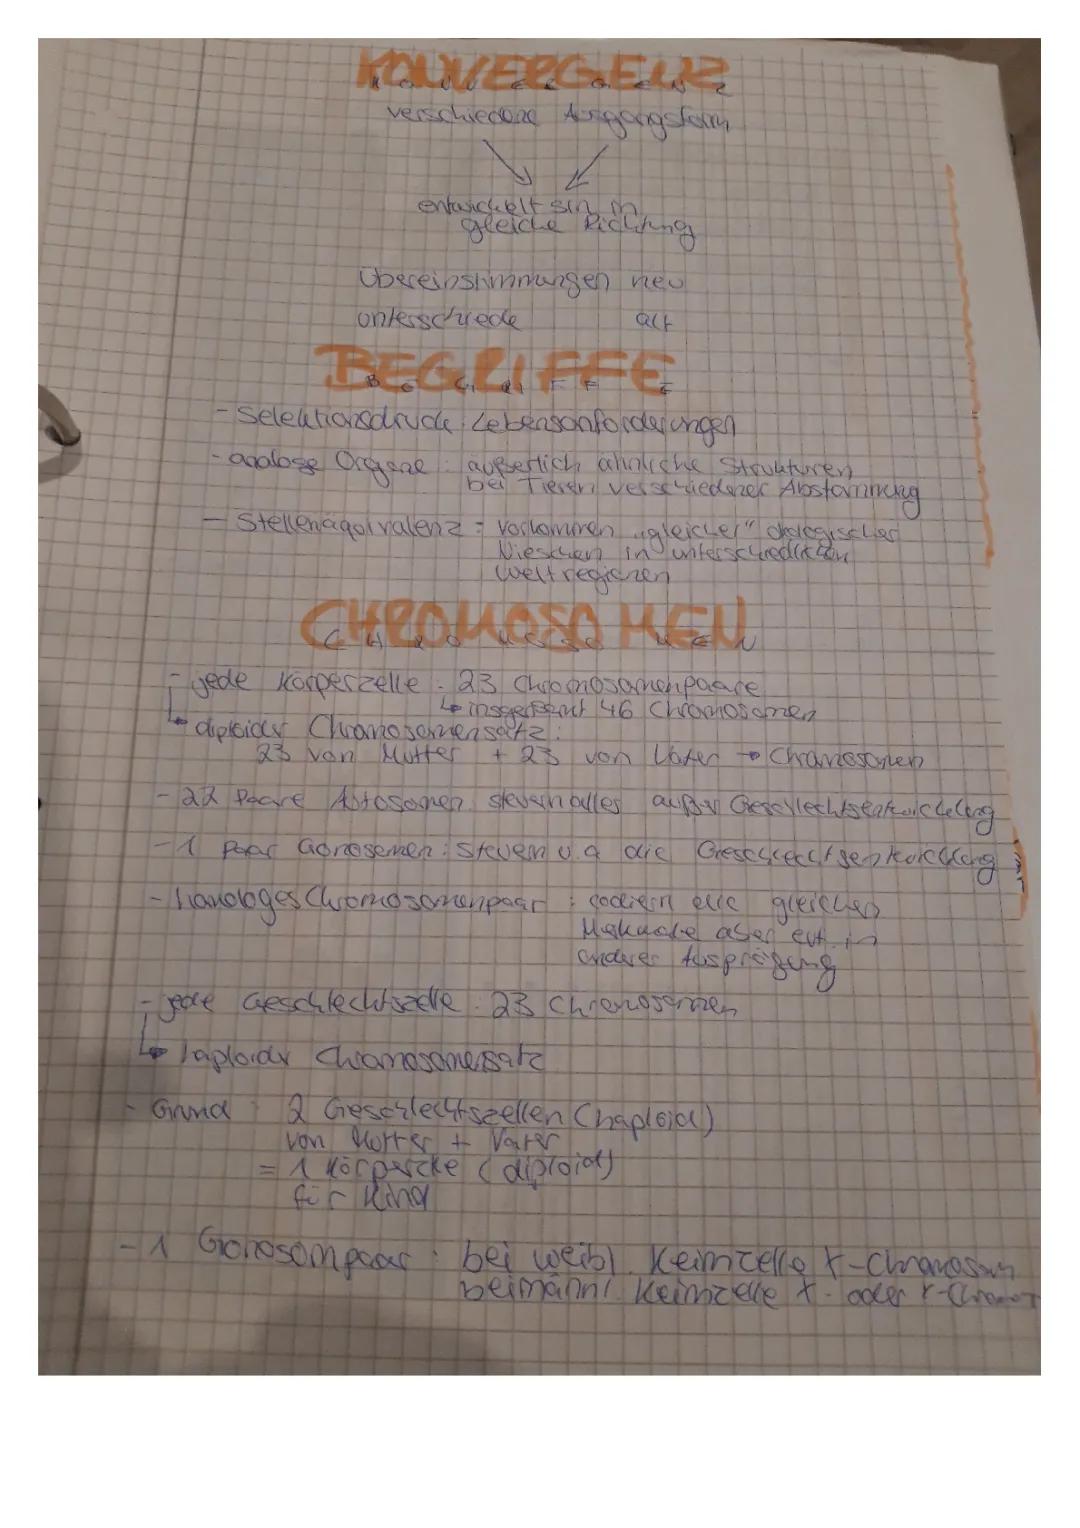 KONVERGENZ
verschiedene Ausgangsform
entwickelt sin in
gleiche Richtung
Übereinstimmungen neu
unterschiede alt
BEGRIFFE
- Selektionsdruck: Lebensanforderungen
- analoge Organe: äußerlich ähnliche Strukturen
bei Tieren verschiedener Abstammung
- Stellenäquivalenz = vorkommen "gleicher" ökologischer
Nieschen in unterschiedlichen
Weltregionen
CHROMOSOMEN
- jede Körperzelle: 23 Chromosomenpaare
↳ insgesamt 46 Chromosomen
↳ diploider Chromosomensatz:
23 von Mutter + 23 von Vater → Chromosomen
- 22 Paare Autosomen steuern alles außer Geschlechtsentwicklung
- 1 Paar Gonosomen: steuern u.a die Geschlechtsentwicklung
- homologes Chromosomenpaar: codiern die gleichen
Merkmale aber evt. in
anderer Ausprägung
- jede Geschlechtszelle: 23 Chromosomen
↳ haploider Chromosomensatz
- Grund: 2 Geschlechtszellen (haploid)
von Mutter + Vater
= 1 Körperzelle (diploid)
für Kind
- 1 Gonosompaar: bei weibl. Keimzelle X-Chromosom
bei männl. Keimzelle X- oder Y-Chromos